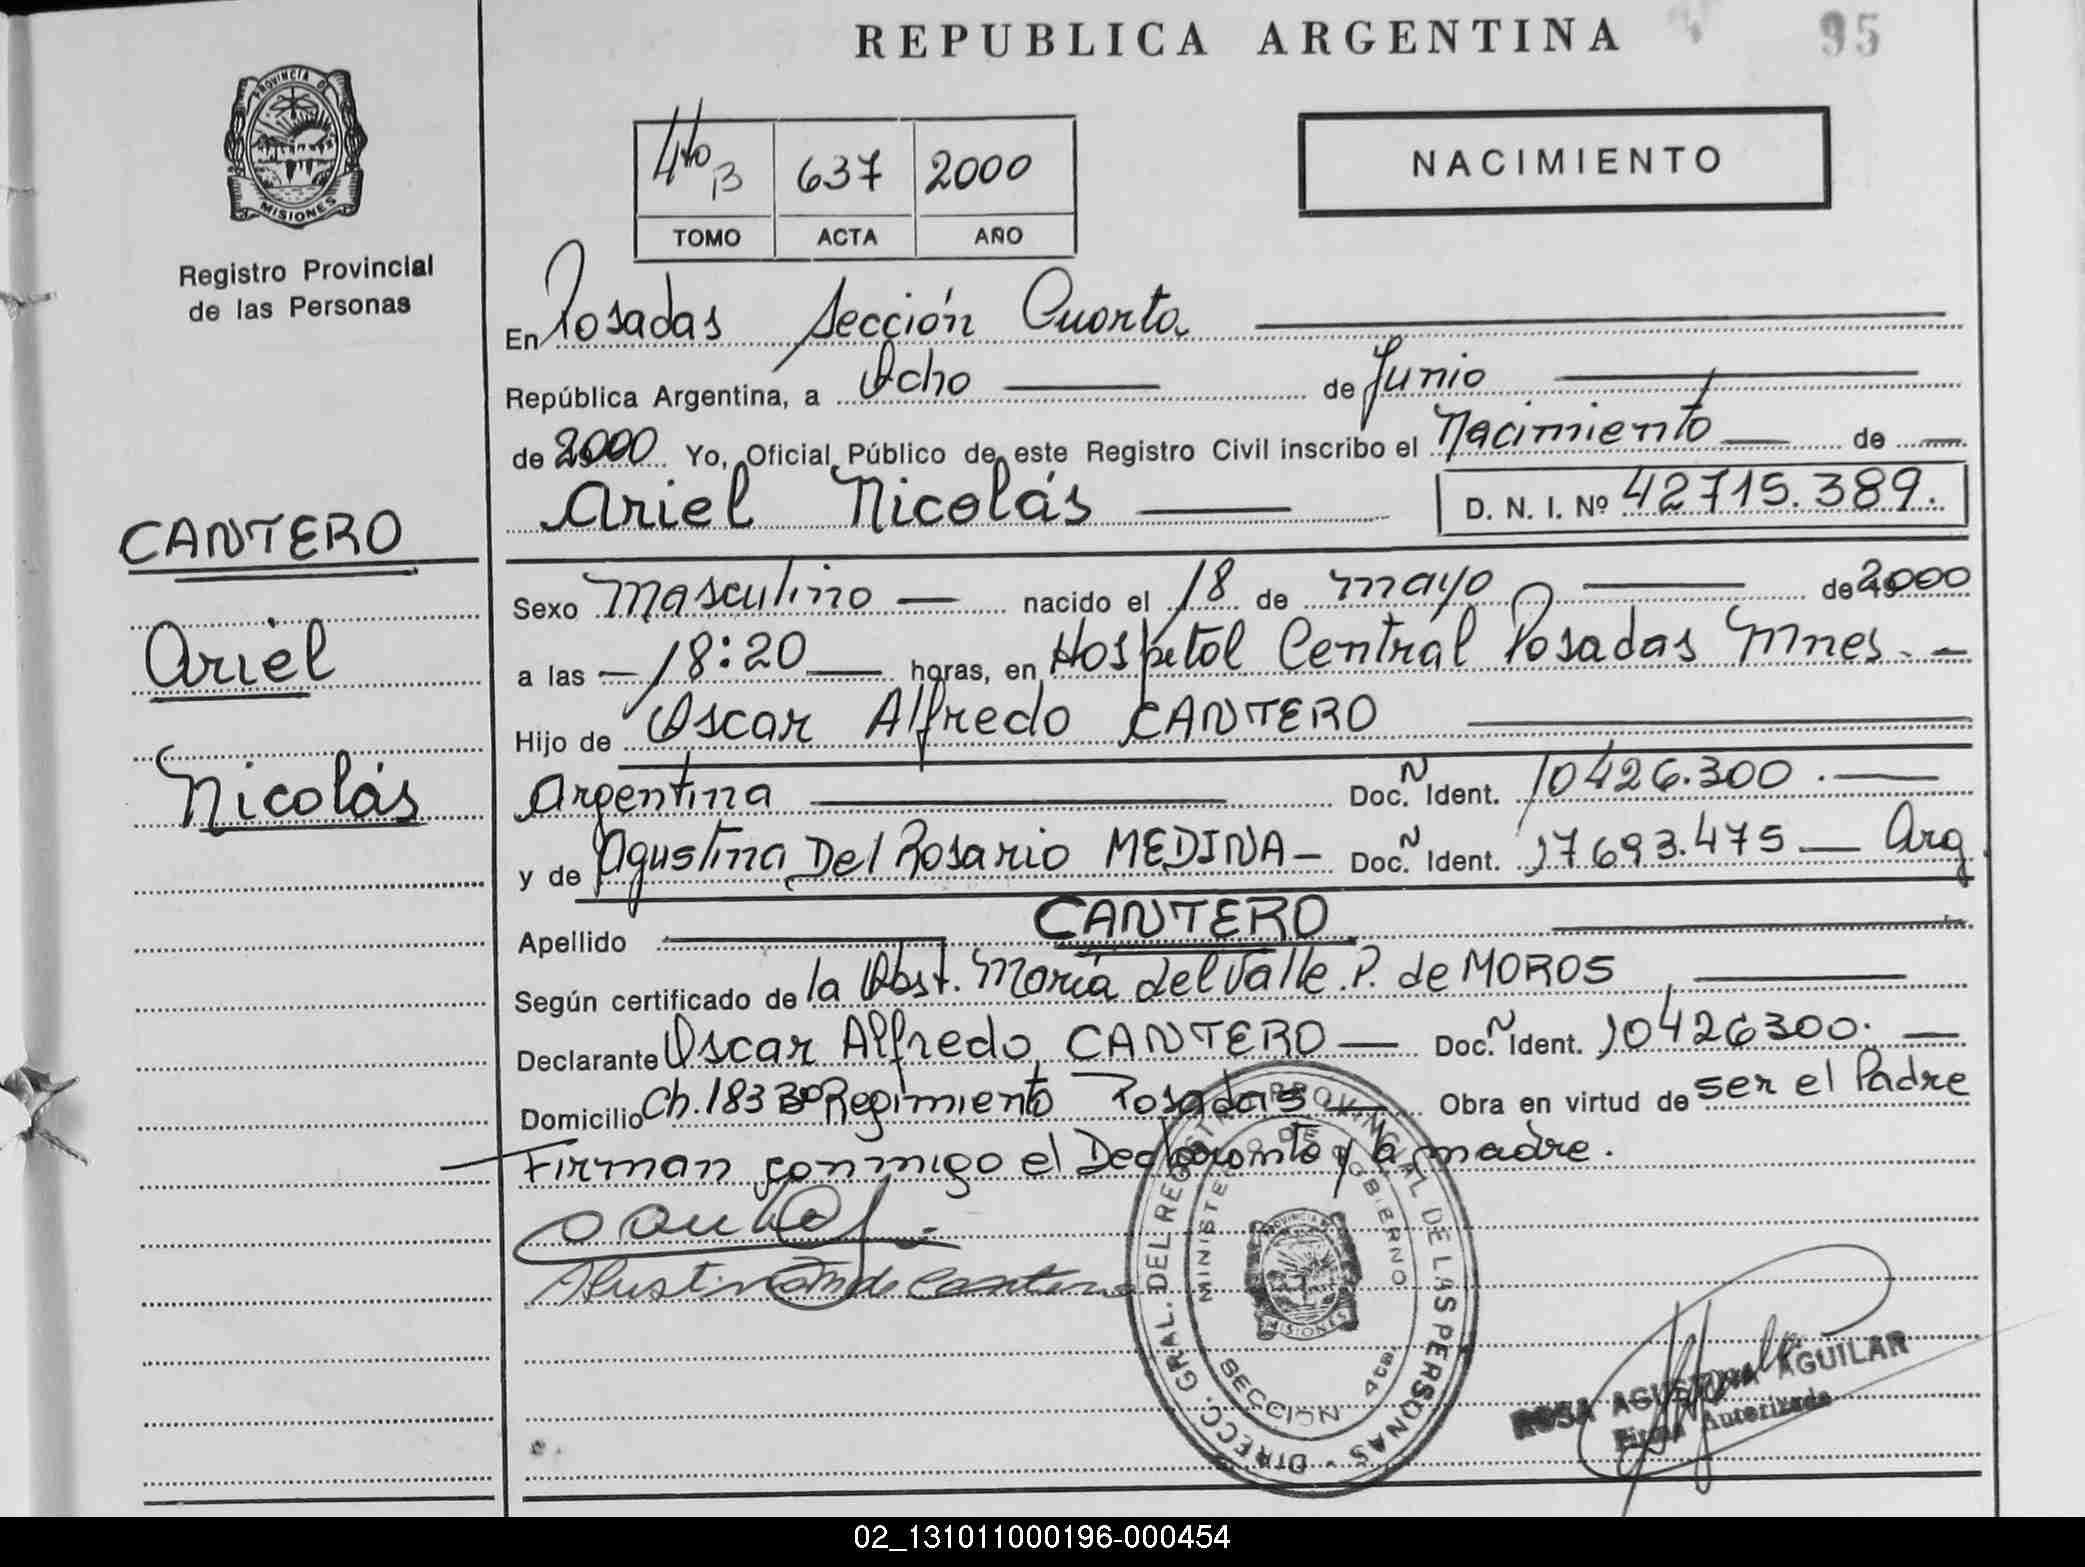 REPUBLICA ARGENTINA
95
PROVINCIA DE
MISIONES
Registro Provincial
de las Personas
4to B 637 2000
TOMO ACTA AÑO
NACIMIENTO
En Posadas Sección Cuarta
República Argentina, a Ocho de Junio
de 2000 Yo, Oficial Público de este Registro Civil inscribo el Nacimiento de
Ariel Nicolás D. N. I. Nº 42715.389.
CANTERO
Ariel
Nicolás
Sexo Masculino nacido el 18 de mayo de 2000
a las 18:20 horas, en Hospital Central Posadas Mnes.
Hijo de Oscar Alfredo CANTERO
Argentina Doc. N Ident. 10426.300.
y de Agustina Del Rosario MEDINA Doc. N Ident. 17693.475 Arg.
Apellido CANTERO
Según certificado de la Obst. María del Valle P. de MOROS
Declarante Oscar Alfredo CANTERO Doc. N Ident. 10426300.
Domicilio Ch. 183 Bº Regimiento Posadas Obra en virtud de ser el Padre
Firman conmigo el Declarante y la madre.
DIRECC. GRAL. DEL REGISTRO PROVINCIAL DE LAS PERSONAS
MINISTERIO DE GOBIERNO
PROVINCIA DE
MISIONES
SECCION 4ta.
ROSA AGUSTINA AGUILAR
Firma Autorizada
02_131011000196-000454